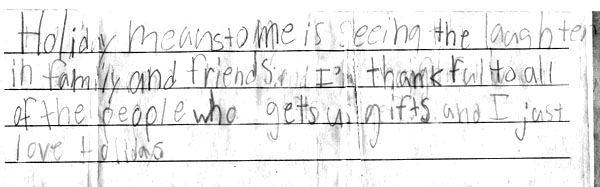 Holiday meanstome is seeing the laughter
in family and friends. and I'm thankfull to all
of the people who gets us gifts and I just
love Holidas